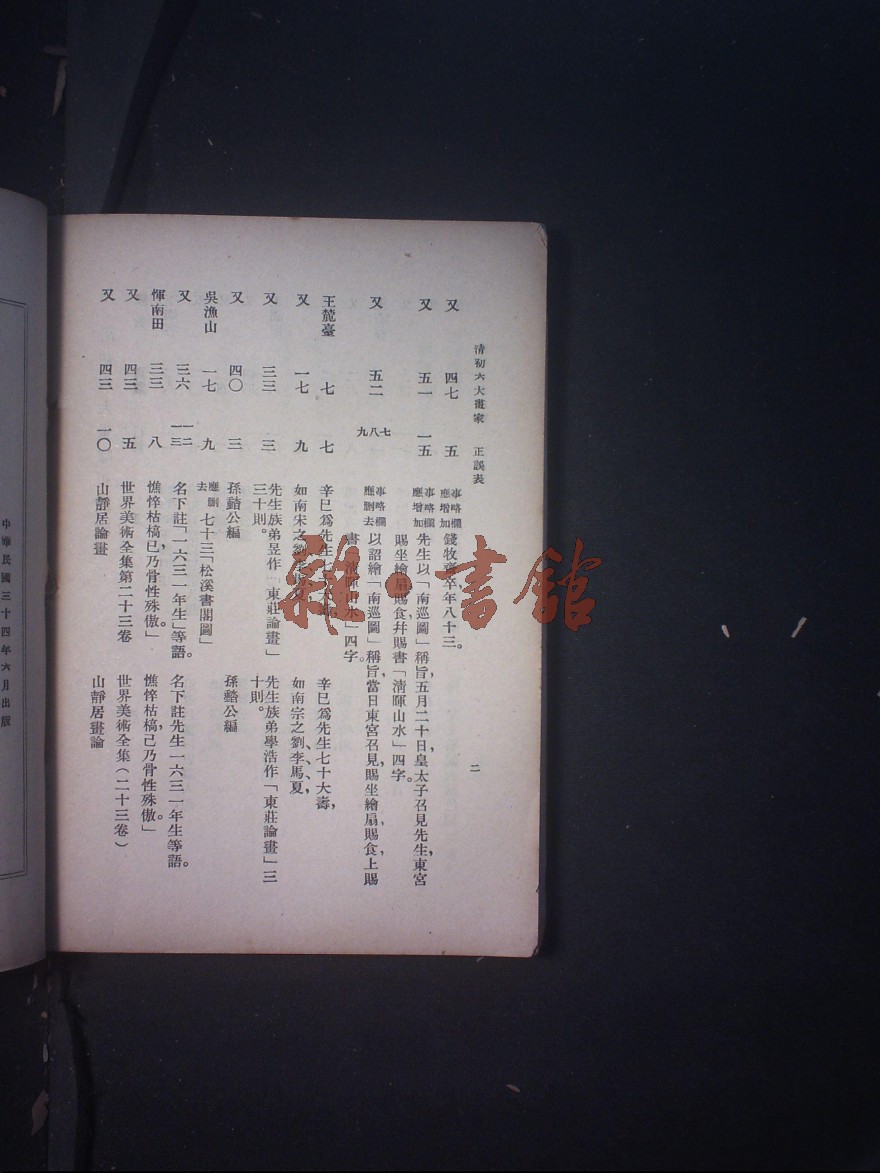 清初六大畫家　正誤表
二
又　四七　五　事略欄應增加　錢牧齋卒年八十三。
又　五一　一五　事略欄應增加　先生以「南巡圖」稱旨，五月二十日皇太子召見先生東宮
賜坐繪扇，賜食幷賜書「淸暉山水」四字。
又　五二　七八九　事略欄應刪去　以詔繪「南巡圖」稱旨，當日東宮召見，賜坐繪扇，賜食上賜
書「淸暉山水」四字。
王麓臺　七　七　辛巳爲先生七　辛巳爲先生七十大壽，
又　一七　九　如南宋之劉　夏，　如南宗之劉、李、馬、夏，
又　三三　三　先生族弟昱作「東莊論畫」　先生族弟學浩作「東莊論畫」三
三十則。　十則。
又　四〇　三　孫谿公編　孫豀公編
吳漁山　一七　九　應刪去　七十三「松溪書閣圖」
又　三六　一二　一三　名下註「一六三一年生」等語。　名下註先生一六三一年生等語。
惲南田　三三　八　憔悴枯槁已乃骨性殊傲」　憔悴枯槁，已乃骨性殊傲。」
又　四三　五　世界美術全集第二十三卷　世界美術全集（二十三卷）
又　四三　一〇　山靜居論畫　山靜居畫論
中華民國三十四年六月出版
雜·書館